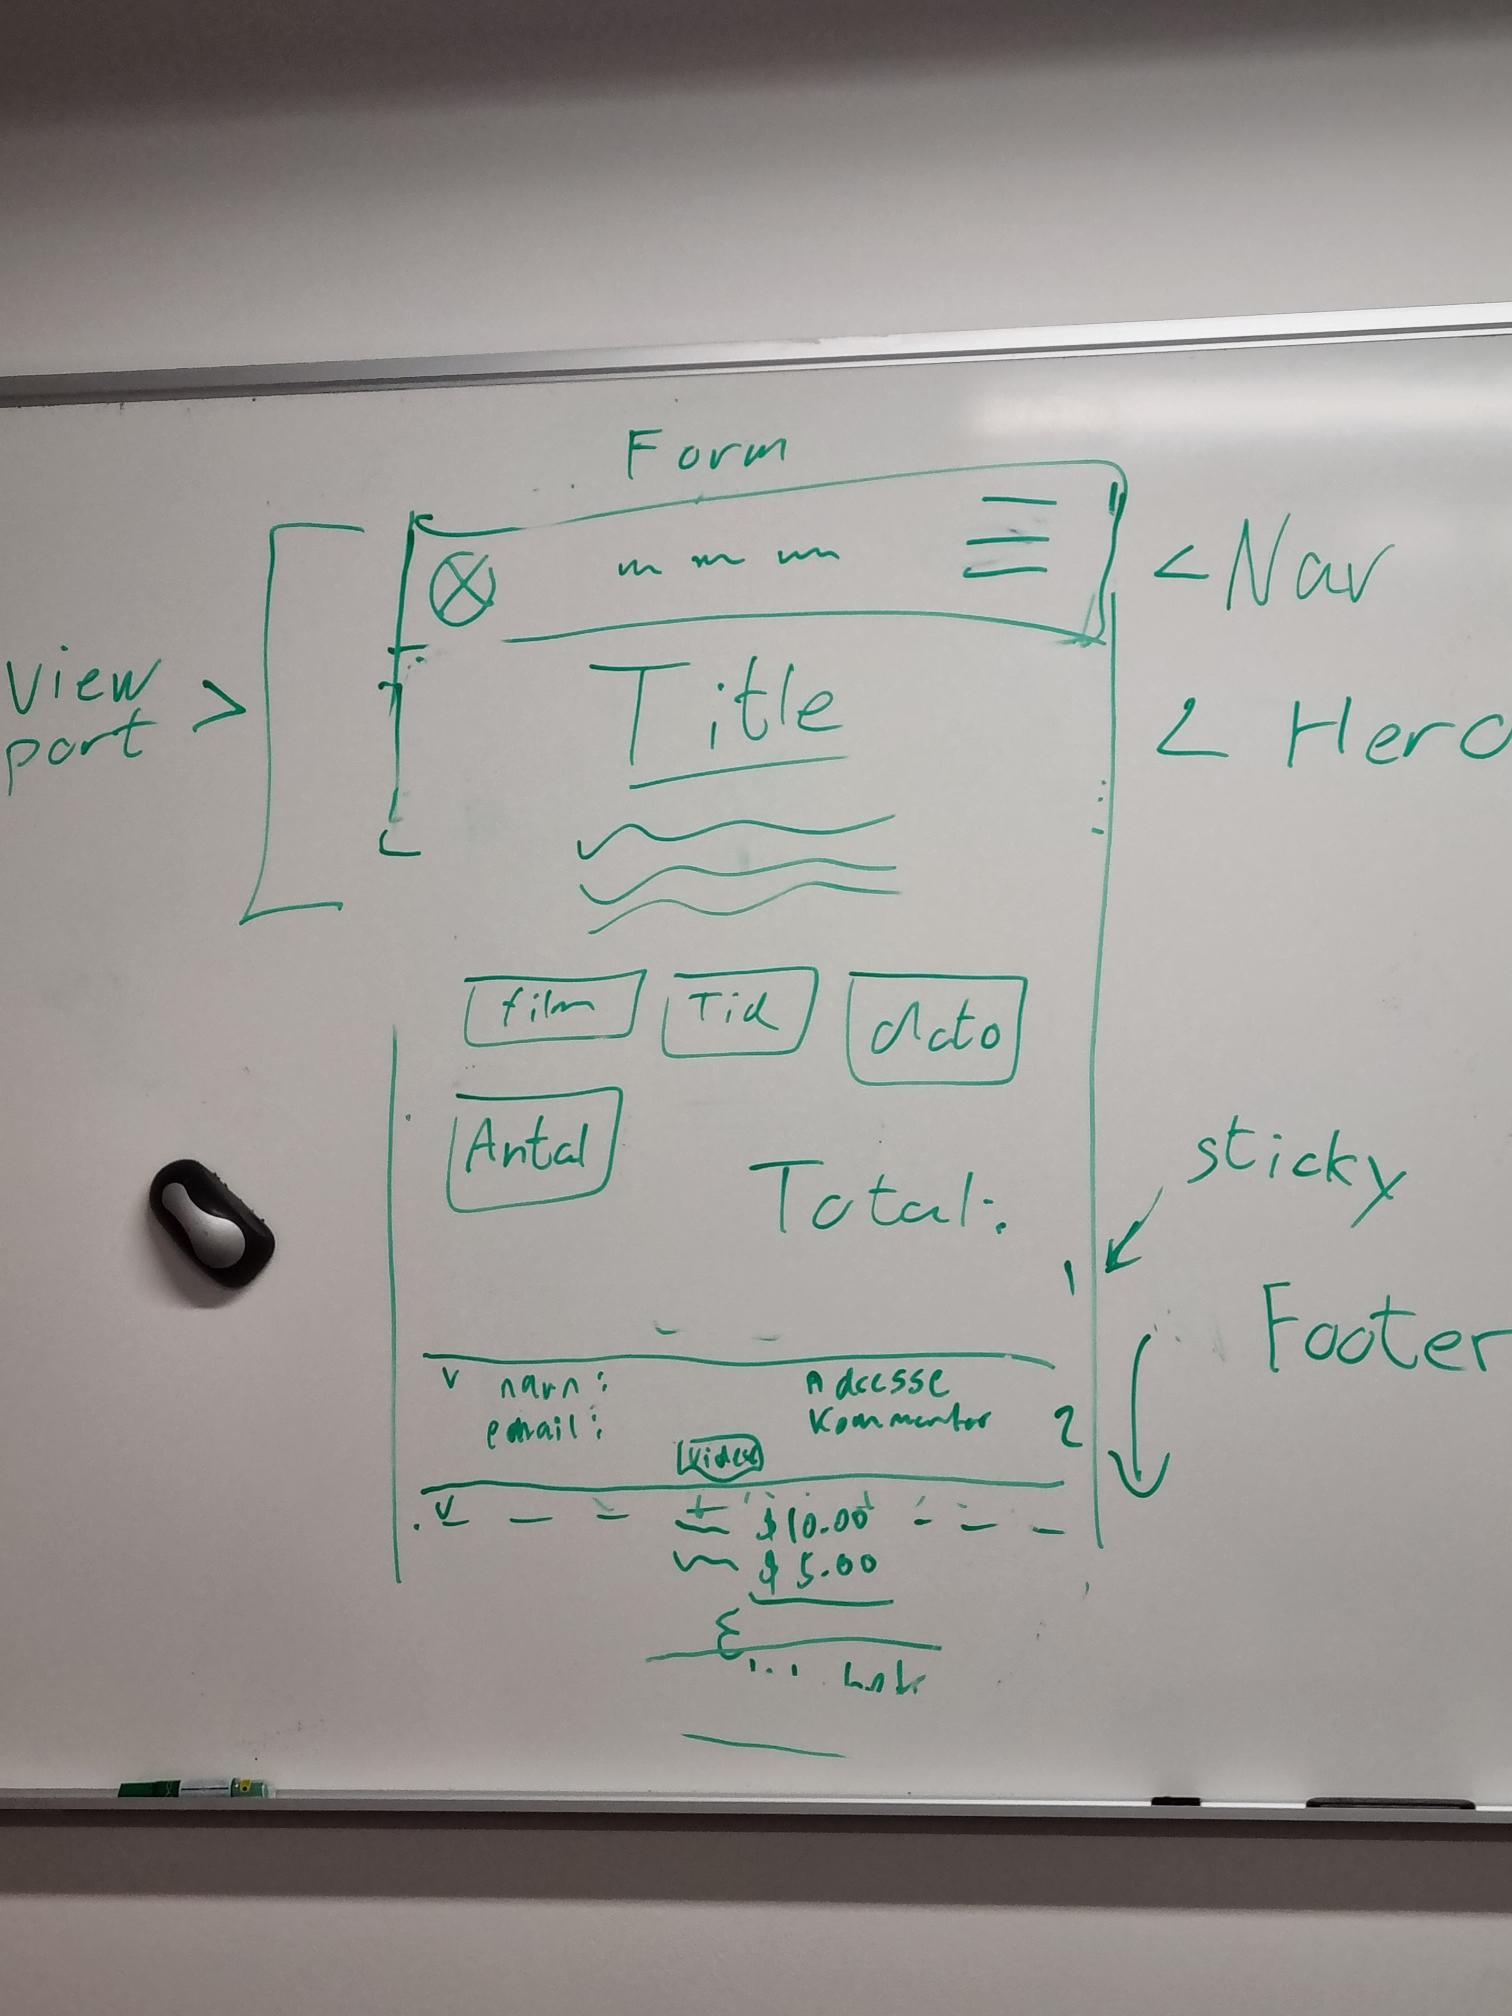 Form
< Nav
View
port >
Title
< Hero
film
Tid
dato
Antal
Total:
sticky
1
Footer
v navn: Adresse
email: Kommentar
2
Videre
v
$10.00
$5.00